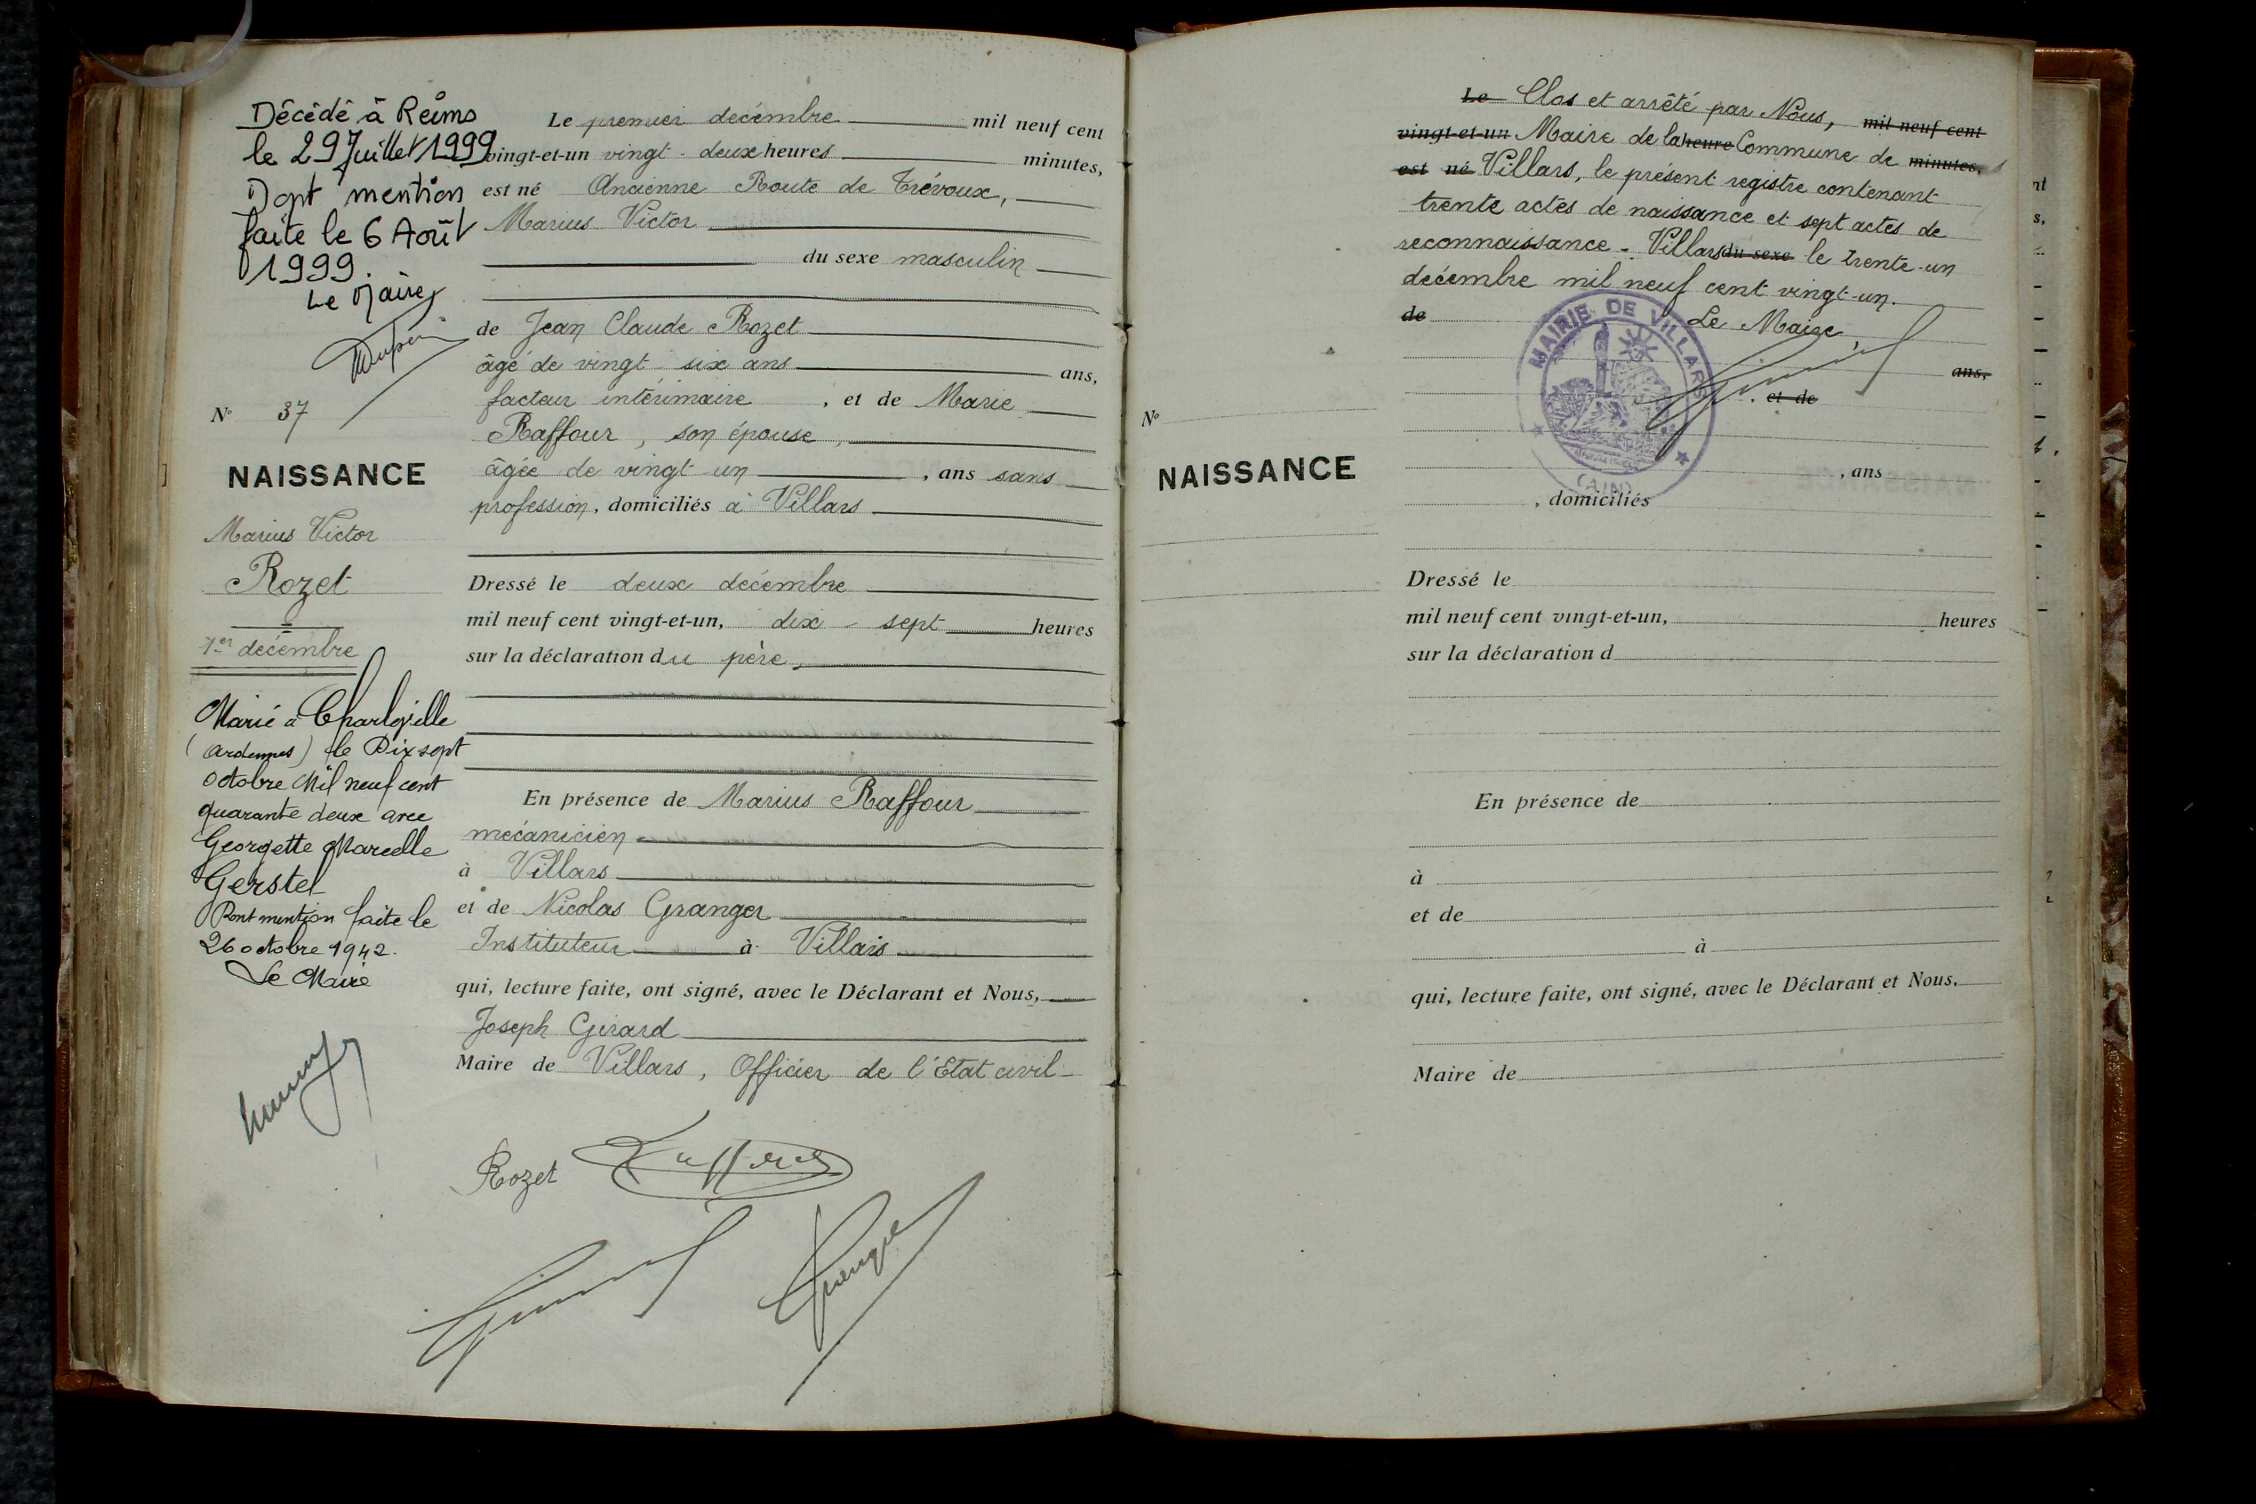 Décédé à Reims
le 29 Juillet 1999
Dont mention
faite le 6 Août
1999.
Le Maire
N° 37
NAISSANCE
Marius Victor
Rozet
1er décembre
Marié à Charleville
(Ardennes) le Dix sept
octobre Mil neuf cent
quarante deux avec
Georgette Marcelle
Gerstel
Dont mention faite le
26 octobre 1942.
Le Maire
Le premier décembre mil neuf cent
vingt-et-un vingt-deux heures minutes,
est né Ancienne Route de Trévoux,
Marius Victor
du sexe masculin
de Jean Claude Rozet
âgé de vingt six ans ans,
facteur intérimaire, et de Marie
Raffour, son épouse,
âgée de vingt un, ans sans
profession, domiciliés à Villars
Dressé le deux décembre
mil neuf cent vingt-et-un, dix-sept heures
sur la déclaration du père,
En présence de Marius Raffour
mécanicien
à Villars
et de Nicolas Granger
Instituteur à Villars
qui, lecture faite, ont signé, avec le Déclarant et Nous,
Joseph Girard
Maire de Villars, Officier de l'Etat civil
Rozet
Le Clos et arrêté par Nous, mil neuf cent
vingt-et-un Maire de la heure Commune de minutes,
est né Villars, le présent registre contenant
trente actes de naissance et sept actes de
reconnaissance - Villars du sexe le trente-un
décembre mil neuf cent vingt-un.
de Le Maire,
MAIRIE DE VILLARS
(AIN)
ans,
, et de
N°
NAISSANCE
, ans
, domiciliés
Dressé le
mil neuf cent vingt-et-un, heures
sur la déclaration d
En présence de
à
et de
à
qui, lecture faite, ont signé, avec le Déclarant et Nous,
Maire de